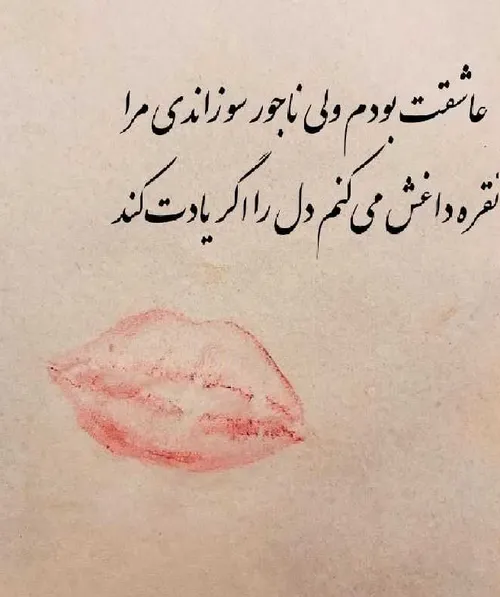 عاشقت بودم ولی ناجور سوزاندی مرا
نقره داغش می کنم دل را اگر یادت کند